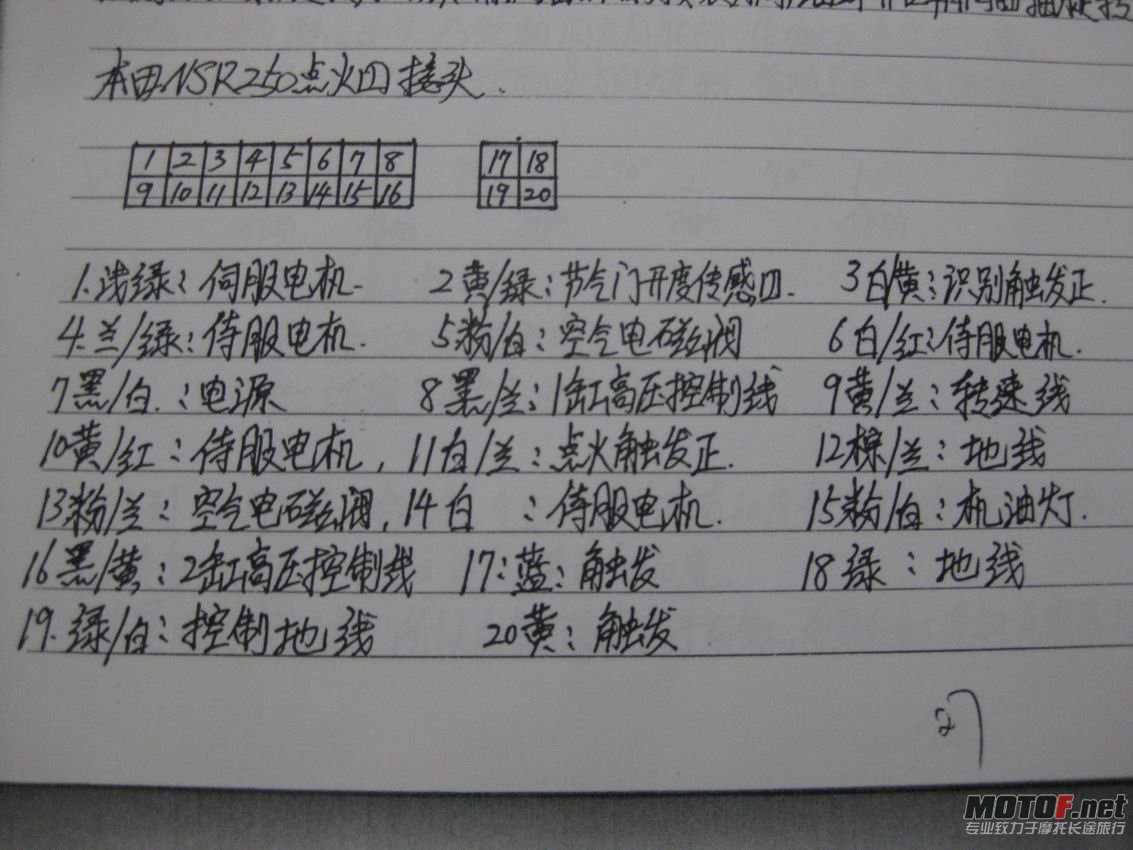 本田NSR250点火口接头.
1 2 3 4 5 6 7 8 17 18
9 10 11 12 13 14 15 16 19 20
1.浅绿: 伺服电机. 2黄/绿: 节气门开度传感口. 3白/黄: 识别触发正.
4.兰/绿: 侍服电机. 5粉/白: 空气电磁阀 6白/红: 侍服电机.
7黑/白.: 电源 8黑/兰: 1缸高压控制线 9黄/兰: 转速线
10黄/红: 侍服电机, 11白/兰: 点火触发正. 12棕/兰: 地线
13粉/兰: 空气电磁阀, 14白 : 侍服电机. 15粉/白: 机油灯.
16黑/黄: 2缸高压控制线 17: 蓝: 触发 18绿: 地线
19.绿/白: 控制地线 20黄: 触发
MOTOF.net
专业致力于摩托长途旅行